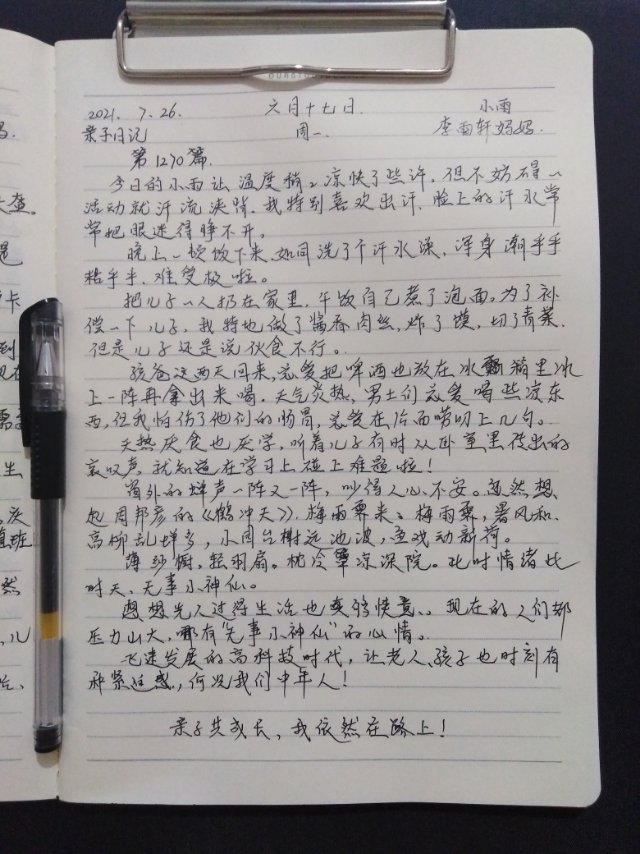 2021. 7. 26. 六月十七日. 小雨
亲子日记 周一. 李雨轩妈妈.
第1270篇.
今日的小雨让温度稍稍凉快了些许. 但不妨碍一
活动就汗流浃背. 我特别喜欢出汗. 脸上的汗水常
常把眼迷得睁不开.
晚上一顿饭下来, 如同洗了个汗水澡, 浑身潮乎乎
粘乎乎. 难受极啦。
把儿子一人扔在家里. 午饭自己煮了泡面. 为了补
偿一下儿子, 我特地做了酱香肉丝, 炸了馍, 切了青菜.
但是儿子还是说伙食不行。
孩爸这两天回来, 总爱把啤酒也放在冰箱里冰
上一阵再拿出来喝. 天气炎热, 男士们总爱喝些凉东
西, 但我怕伤了他们的肠胃, 总爱在后面唠叨上几句。
天热厌食也厌学, 听着儿子有时从卧室里传出的
哀叹声. 就知道在学习上碰上难题啦!
窗外的蝉声一阵又一阵, 吵得人心不安。忽然想
起周邦彦的《鹤冲天》, 梅雨霁来。梅雨霁, 暑风和.
高柳乱蝉多, 小园台榭远池波, 鱼戏动新荷。
薄纱橱, 轻羽扇。枕冷簟凉深院。此时情绪此
时天, 无事小神仙。
想想先人过得生活也真够惬意、现在的人们都
压力山大, 哪有"无事小神仙"的心情。
飞速发展的高科技时代, 让老人、孩子也时刻有
种紧迫感, 何况我们中年人!
亲子共成长, 我依然在路上!